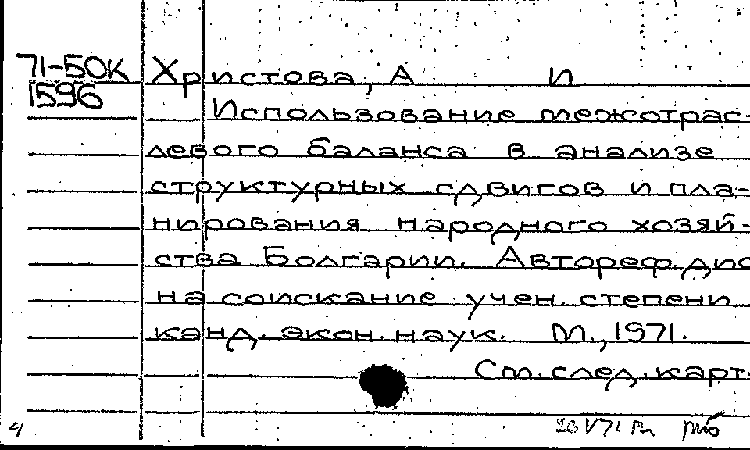 71-50К Христова, А И
1596
Использование межотрас-
левого баланса в анализе
структурных сдвигов и пла-
нирования народного хозяй-
ства Болгарии. Автореф. дис
на соискание учен. степени
канд. экон. наук. М., 1971.
См. след. карт.